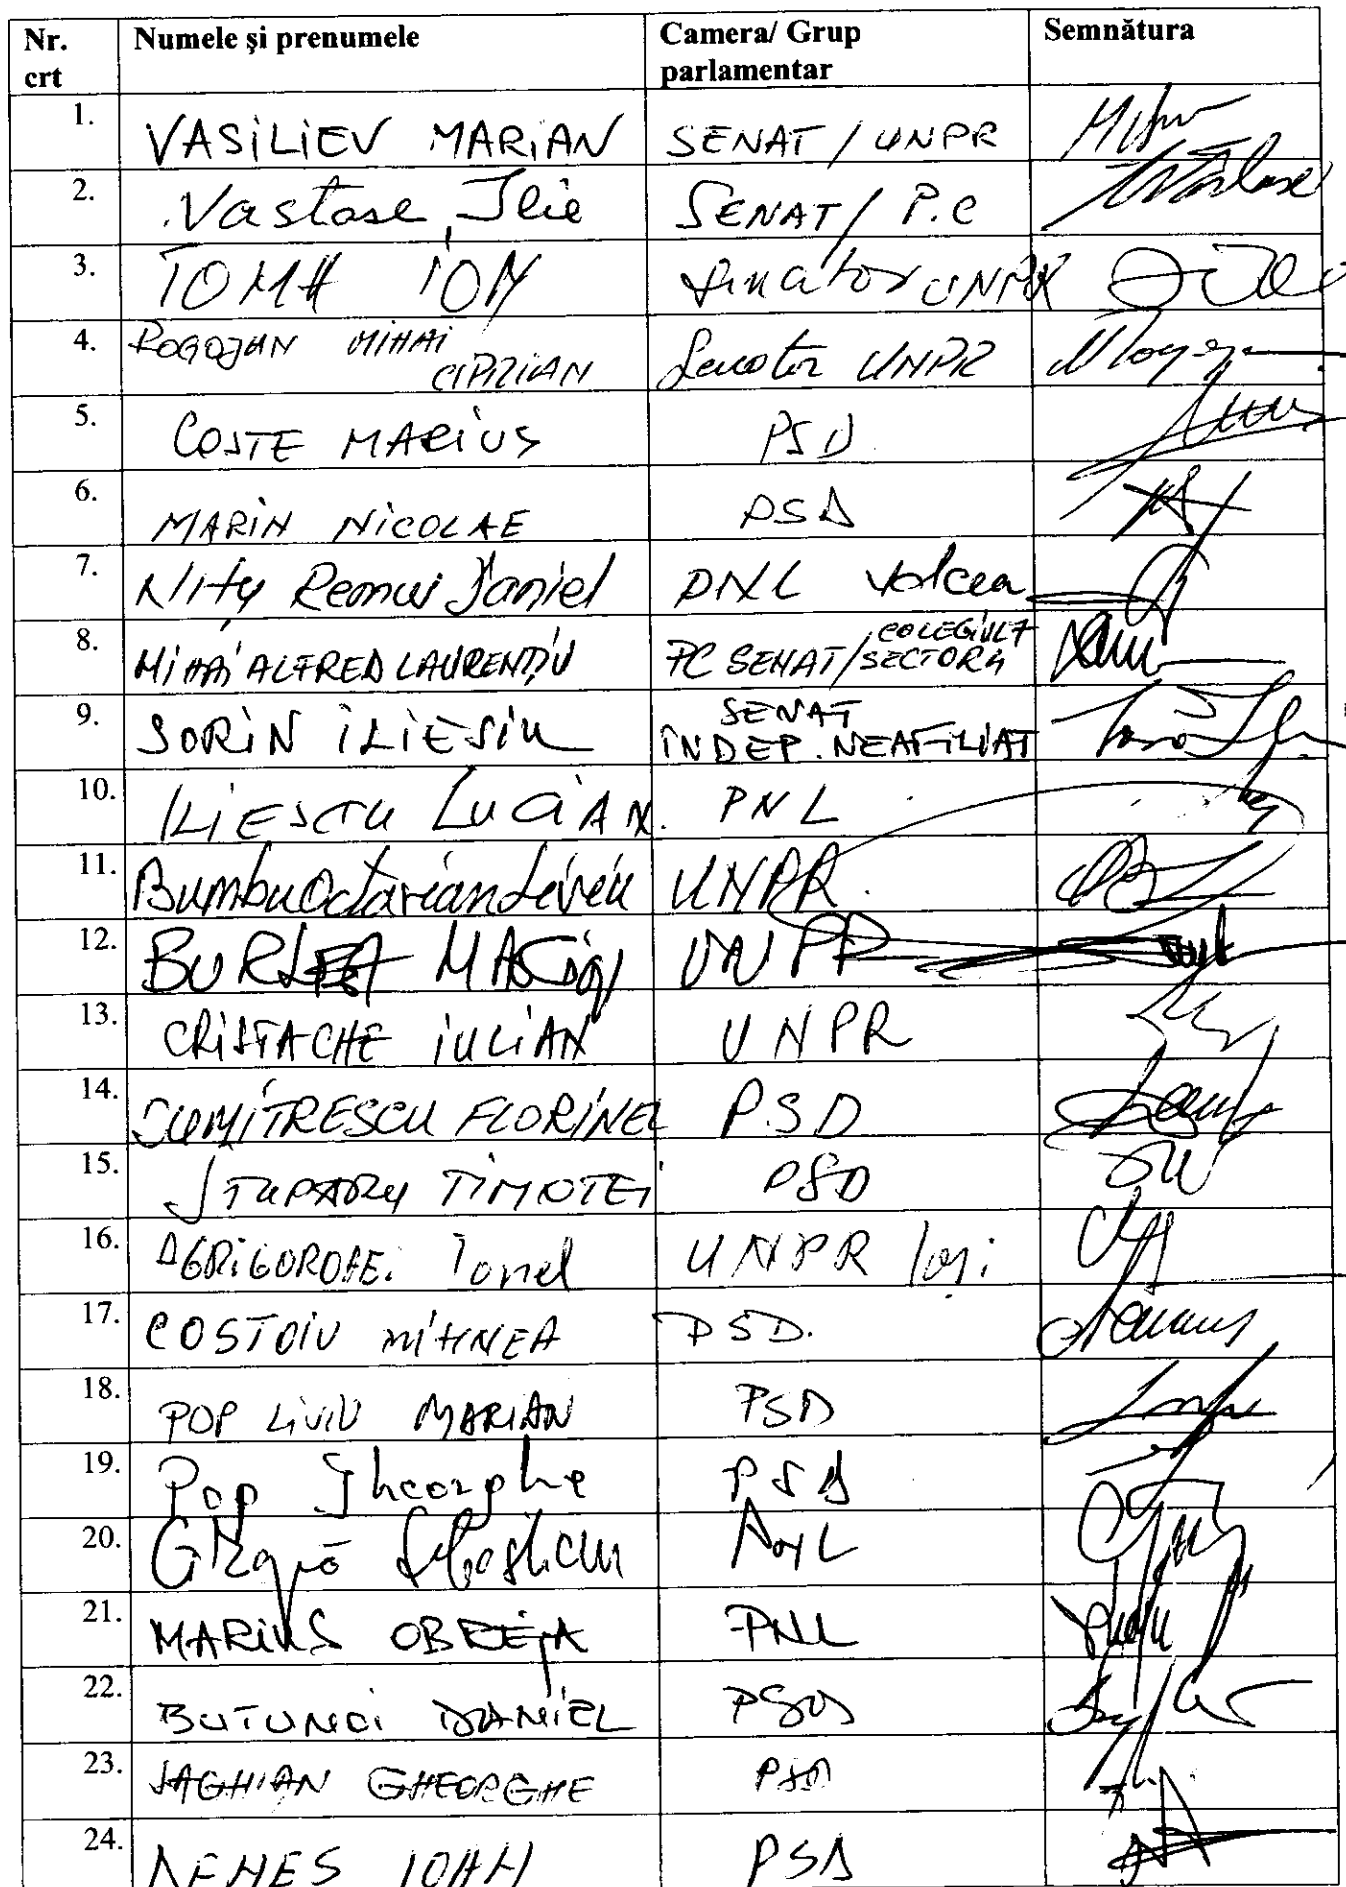 Nr. crt Numele și prenumele Camera/ Grup parlamentar Semnătura
1. VASILIEV MARIAN SENAT / UNPR
2. Vastase Ilie SENAT / P.C
3. TOMA ION Senator UNPR
4. ROGOJAN MIHAI CIPRIAN Senator UNPR
5. COSTE MARIUS PSD
6. MARIN NICOLAE PSD
7. Niţu Remus Daniel PNL Valcea
8. MIHAI ALFRED LAURENŢIU PC SENAT/ COLEGIUL 7 SECTOR 4
9. SORIN ILIEŞIU SENAT INDEP. NEAFILIAT
10. ILIESCU LUCIAN. PNL
11. Bumbu Octavian Liviu UNPR
12. BURLEA MARIN UNPR
13. CRISTACHE IULIAN UNPR
14. DUMITRESCU FLORINEL P.S.D
15. STUPARU TIMOTEI PSD
16. AGRIGOROAEI Ionel UNPR Iaşi
17. COSTOIU MIHNEA PSD.
18. POP LIVIU MARIAN PSD
19. Pop Gheorghe PSD
20. Grapă Sebastian PNL
21. MARIUS OBREJA PNL
22. BUTUNOI DANIEL PSD
23. SAGHIAN GHEORGHE PSD
24. NEMES IOAN PSD